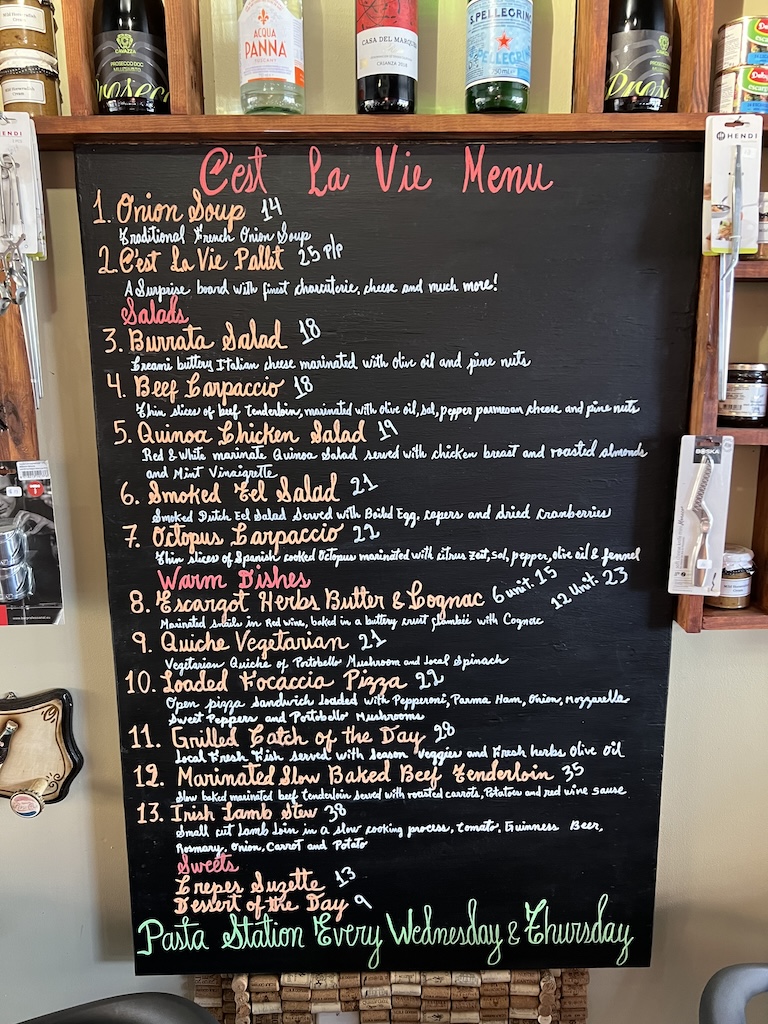 CAVAZZA
PROSECCO DOC
MILLESIMATO
Prosecc
ACQUA
PANNA
TOSCANY
CASA DEL MARQUÉS
CRIANZA 2018
S.PELLEGRINO
CAVAZZA
PROSECCO DOC
MILLESIMATO
Prosec
HENDI
HENDI
BOSKA
C'est La Vie Menu
1. Onion Soup 14
Traditional French Onion Soup
2. C'est La Vie Pallet 25 P/P
A Surprise board with finest charcuterie, cheese and much more!
Salads
3. Burrata Salad 18
Creami buttery Italian cheese marinated with olive oil and pine nuts
4. Beef Carpaccio 18
Thin slices of beef tenderloin, marinated with olive oil, sal, pepper parmesan cheese and pine nuts
5. Quinoa Chicken Salad 19
Red & White marinate Quinoa Salad served with chicken breast and roasted almonds
and Mint Vinaigrette
6. Smoked Eel Salad 21
Smoked Dutch Eel Salad Served with Boild Egg, capers and dried cranberries
7. Octopus Carpaccio 22
Thin slices of Spanish cooked Octopus marinated with citrus zest, sal, pepper, olive oil & fennel
Warm Dishes
8. Escargot Herbs Butter & Cognac 6 unit. 15 12 Unit. 23
Marinated snails in Red wine, baked in a buttery cruit flambéé with Cognac
9. Quiche Vegetarian 21
Vegetarian Quiche of Portobello Mushroom and local Spinach
10. Loaded Focaccia Pizza 22
Open pizza sandwich loaded with Pepperoni, Parma Ham, Onion, Mozzarella
Sweet Peppers and Portobello Mushrooms
11. Grilled Catch of the Day 28
Local Fresh Fish served with Season Veggies and Fresh herbs Olive oil
12. Marinated Slow Baked Beef Tenderloin 35
Slow baked marinated beef tenderloin served with roasted carrots, Potatoes and red wine sause
13. Irish Lamb Stew 38
Small cut Lamb Loin in a slow cooking process, tomato, Guinness Beer,
Rosmary, Onion, Carrot and Potato
Sweets
Crepes Suzette 13
Dessert of the Day 9
Pasta Station Every Wednesday & Thursday